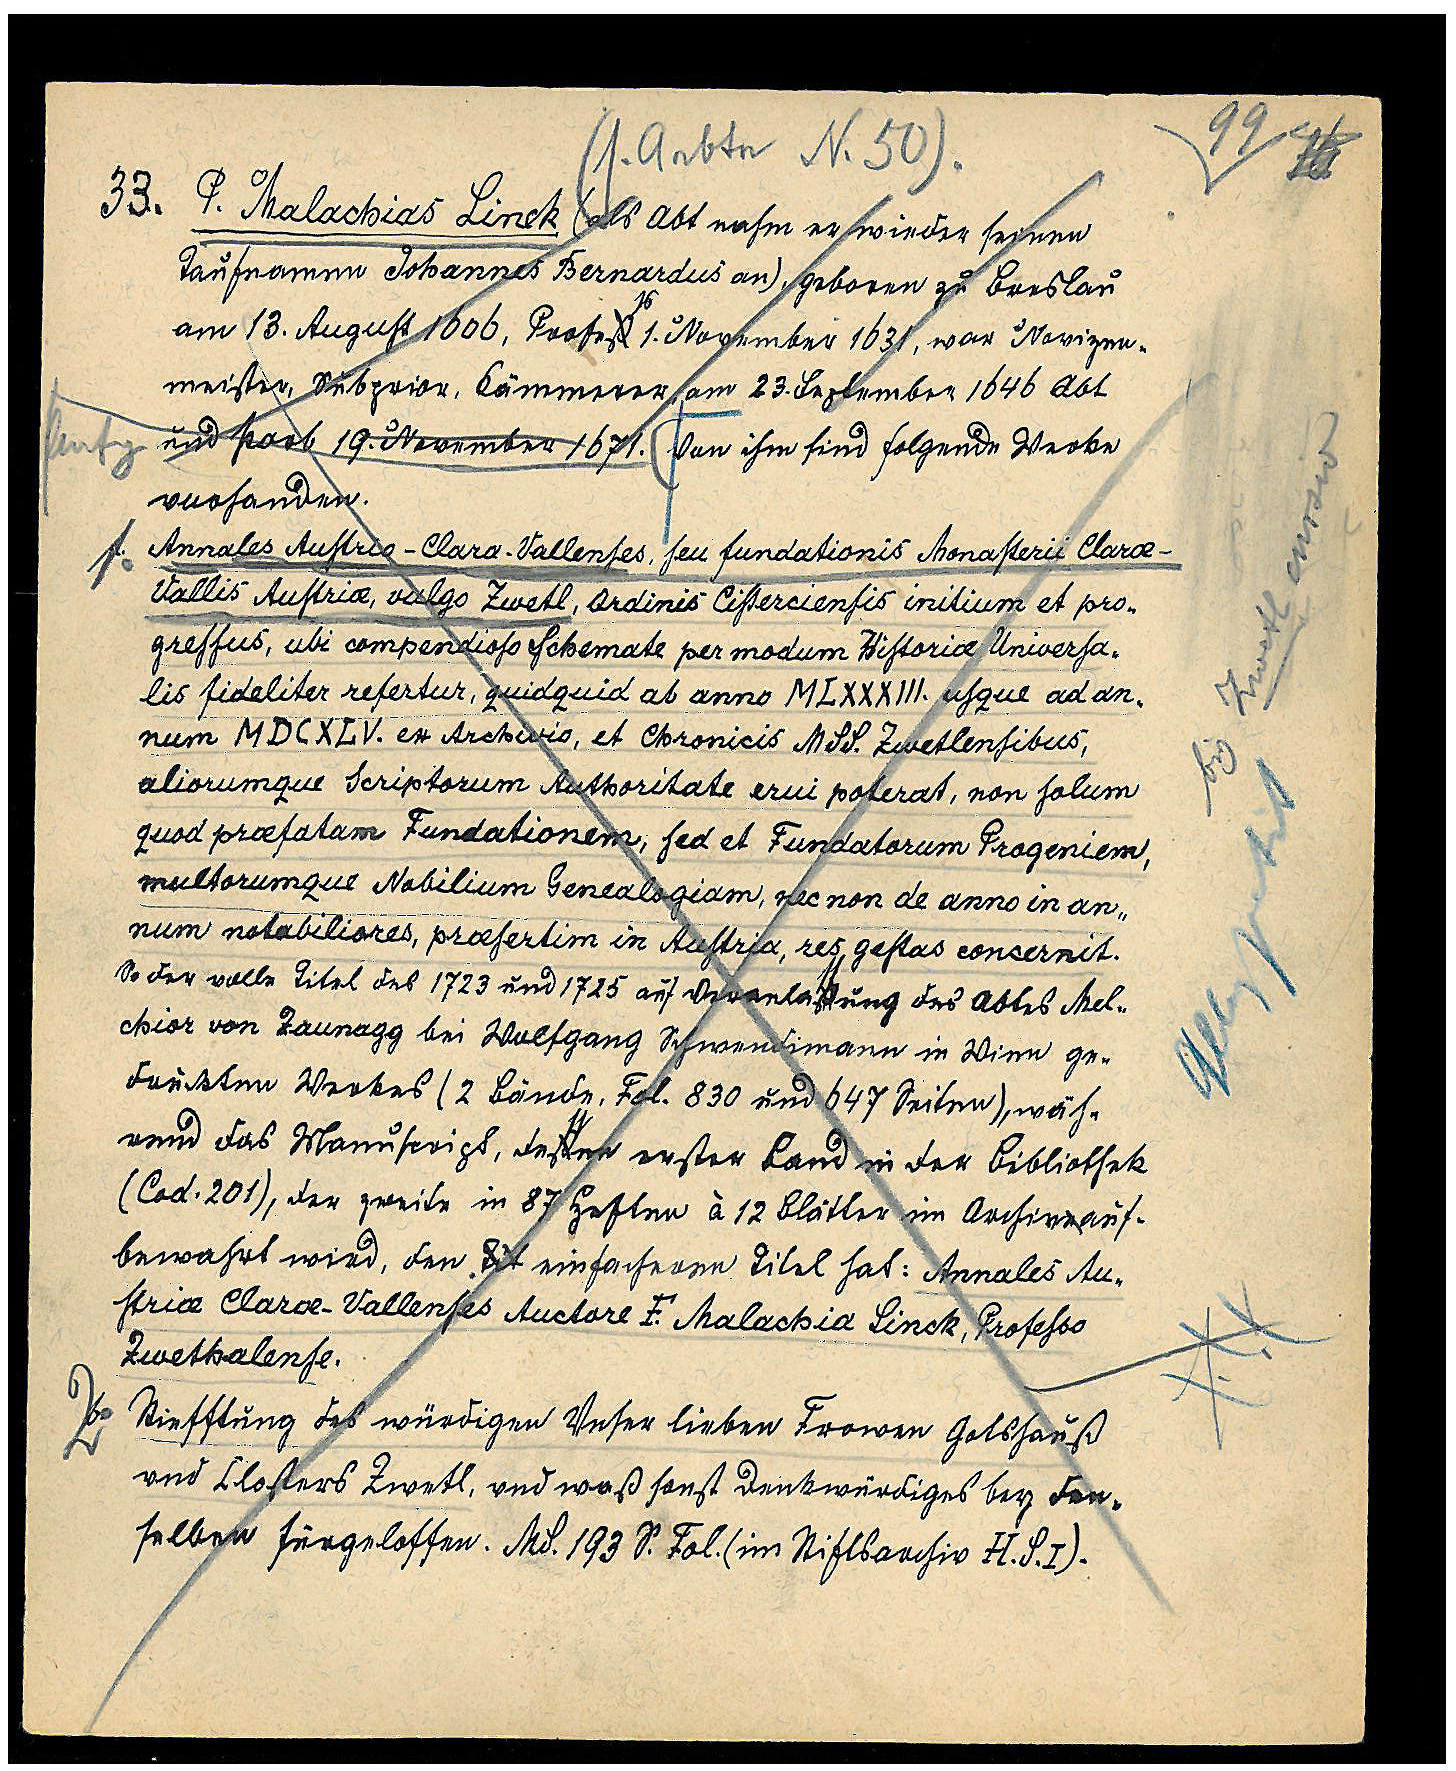 (s. Aebte N. 50).
99
33. P. Malachias Linck (als Abt nahm er wieder seinen
Taufnamen Johannes Bernardus an), geboren zu Breslau
am 13. August 1606, Profeß 1. November 1631, war Novizen-
meister, Subprior, Kämmerer, am 23. September 1646 Abt
und starb 19. November 1671. (Von ihm sind folgende Werke
vorhanden.
1. Annales Austrio-Clara-Vallenses, seu fundationis Monasterii Claræ-
Vallis Austriæ, vulgo Zwetl, Ordinis Cisterciensis initium et pro-
gressus, ubi compendioso Schemate per modum Historiæ Universa-
lis fideliter refertur, quidquid ab anno MLXXXIII. usque ad an-
num MDCXLV. ex Archivio, et Chronicis MSS. Zwetlensibus,
aliorumque Scriptorum Authoritate erui poterat, non solum
quod præfatam Fundationem, sed et Fundatorum Progeniem,
multorumque Nobilium Genealogiam, nec non de anno in an-
num notabiliores, præsertim in Austria, res gestas concernit.
So der volle Titel des 1723 und 1725 auf Veranlassung des Abtes Mel-
chior von Zaunagg bei Wolfgang Schwendimann in Wien ge-
druckten Werkes (2 Bände, Fol. 830 und 647 Seiten), wäh-
rend das Manuscript, dessen erster Band in der Bibliothek
(Cod. 201), der zweite in 87 Heften à 12 Blätter im Archive auf-
bewahrt wird, den einfacheren Titel hat: Annales Au-
striæ Claræ-Vallenses Auctore F. Malachia Linck, Professo
Zwethalense.
2. Stiefftung des würdigen Unser lieben Frowen Gotshauß
vnd Closters Zwetl, vnd waß sonst Denkwürdiges bey den-
selben fürgeloffen. MS. 193 S. Fol. (im Stiftsarchiv H.S.I).
bis Zwetl cursiv